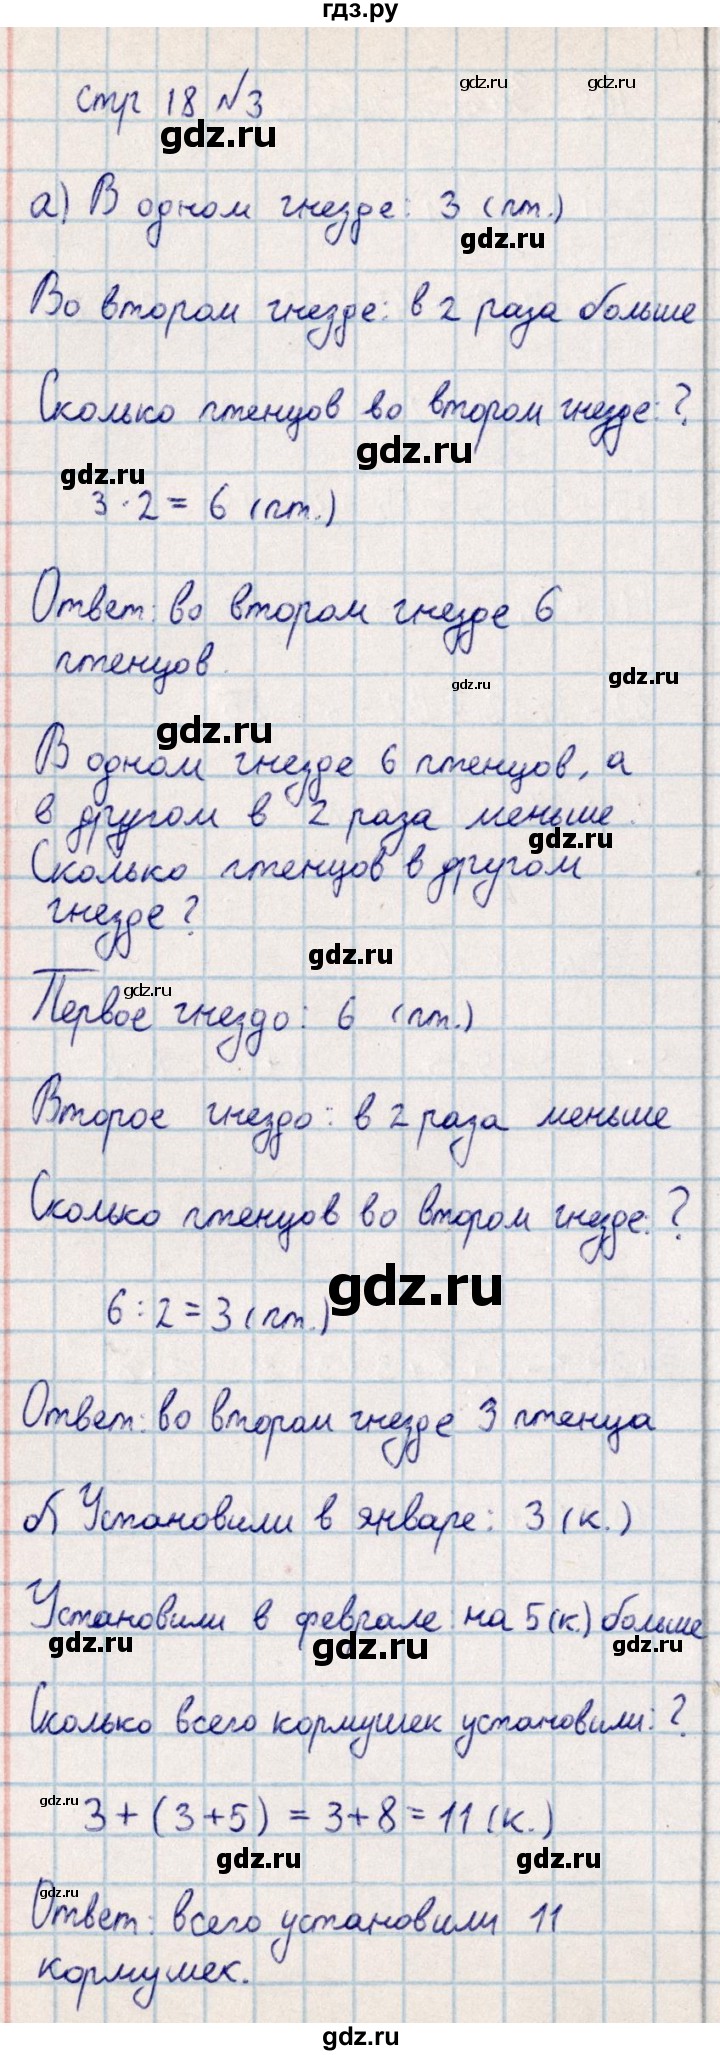 гдз.ру
gdz.ru gdz.ru
стр 18 №3
gdz.ru
а) В одном гнезде: 3 (пт.)
gdz.ru
Во втором гнезде: в 2 раза больше
Сколько птенцов во втором гнезде: ?
gdz.ru
gdz.ru
3 · 2 = 6 (пт.)
Ответ: во втором гнезде 6
птенцов.
gdz.ru
gdz.ru
gdz.ru
В одном гнезде 6 птенцов, а
в другом в 2 раза меньше.
gdz.ru
Сколько птенцов в другом
гнезде?
gdz.ru
gdz.ru
Первое гнездо: 6 (пт.)
Второе гнездо: в 2 раза меньше
Сколько птенцов во втором гнезде: ?
gdz.ru
6 : 2 = 3 (пт.)
Ответ: во втором гнезде 3 птенца
б) Установили в январе: 3 (к.)
Установили в феврале: на 5 (к.) больше
gdz.ru gdz.ru gdz.ru
Сколько всего кормушек установили: ?
gdz.ru
3 + (3 + 5) = 3 + 8 = 11 (к.)
gdz.ru gdz.ru
gdz.ru
Ответ: всего установили 11
кормушек.
gdz.ru